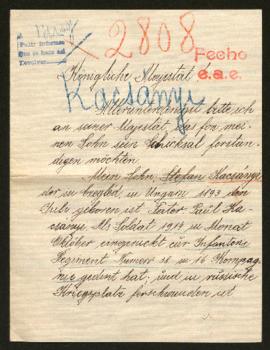 Pedir informes
que se hace así
Devolver
X 2808
Fecho
é.a.e.
Königliche Majestät
Kacsányi
Alleruntertänigst bitte ich
an seiner Majestät, das for mei-
nen Sohn sein Schicksal forstän-
digen möchten.
Mein Sohn, Stefan Kacsányi
der in Czegléd, in Ungarn 1893 den
Juli geboren ist Vater Paul Ka-
csányi. Als Soldat 1914 in Monat
Oktober eingerückt zür Infanterie
Regiment Numero in 16 Kompag-
nie gedient hat; und in russische
Kriegsplatz forschwunden ist